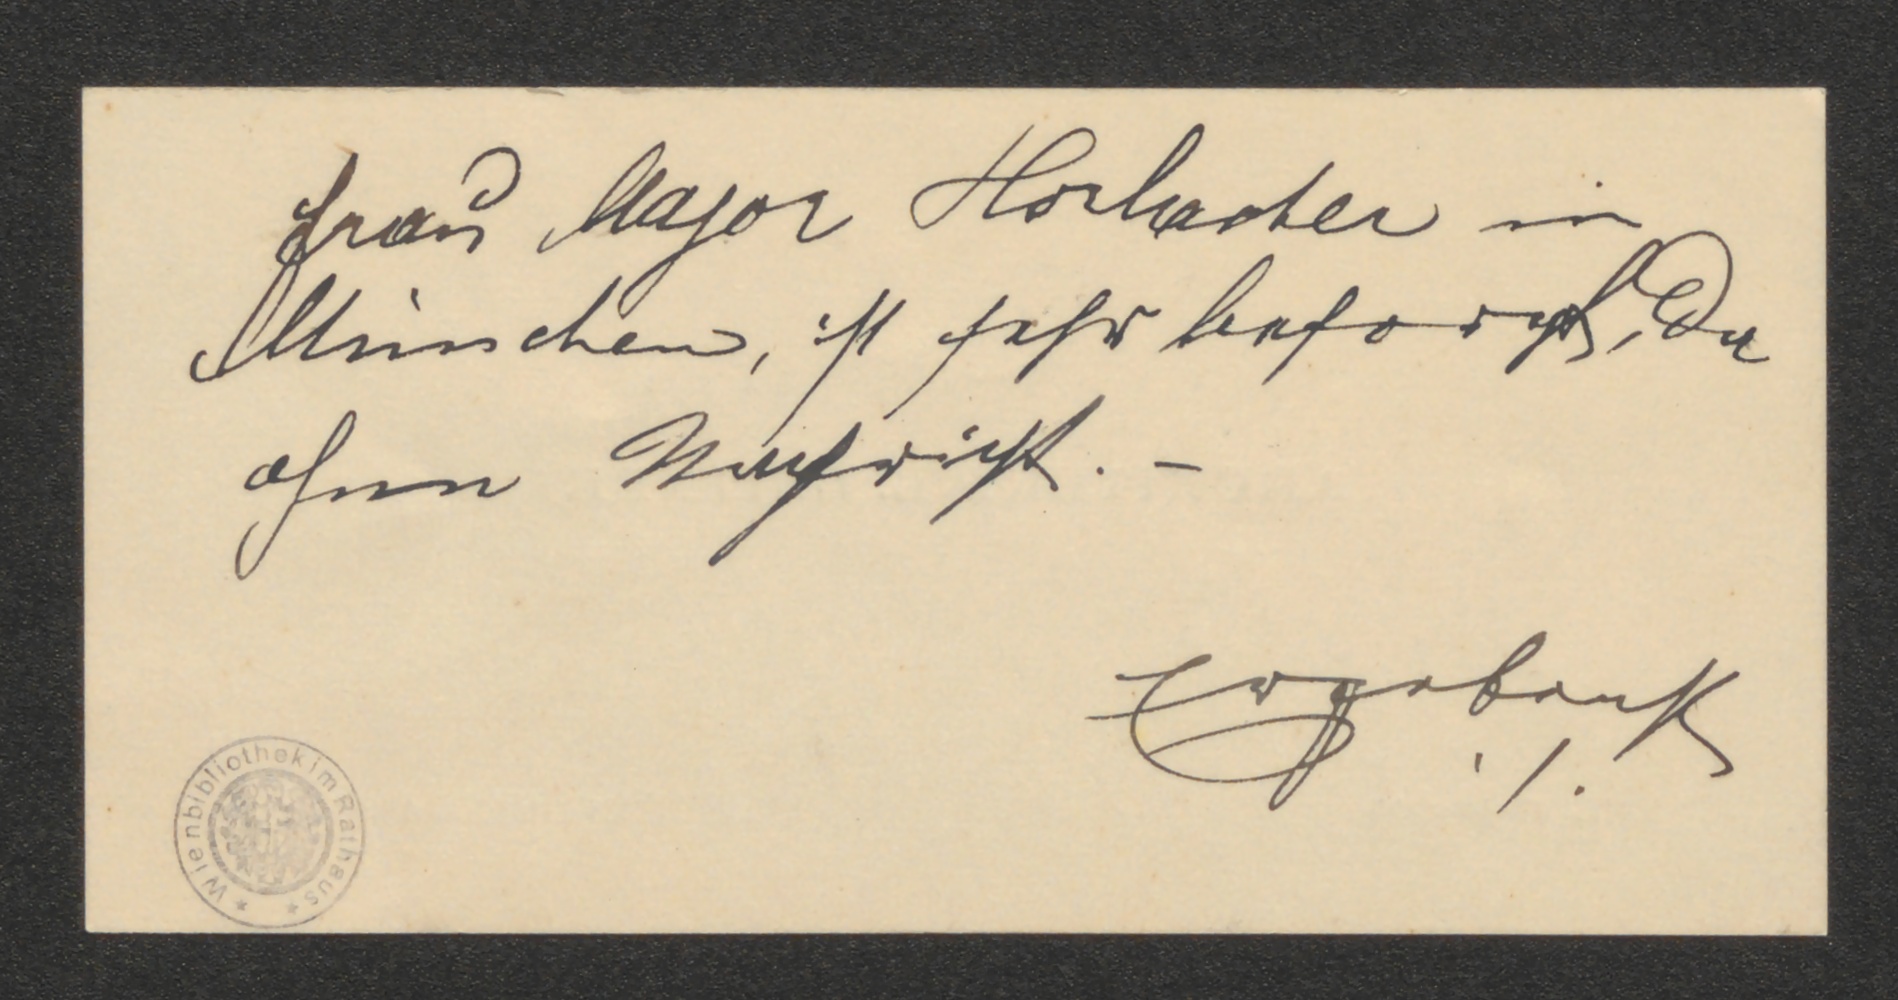 Frau Major Horbacher in
München, ist sehr besorgt, da
ohne Nachricht. –
Ergebenst
./.
Wienbibliothek im Rathaus